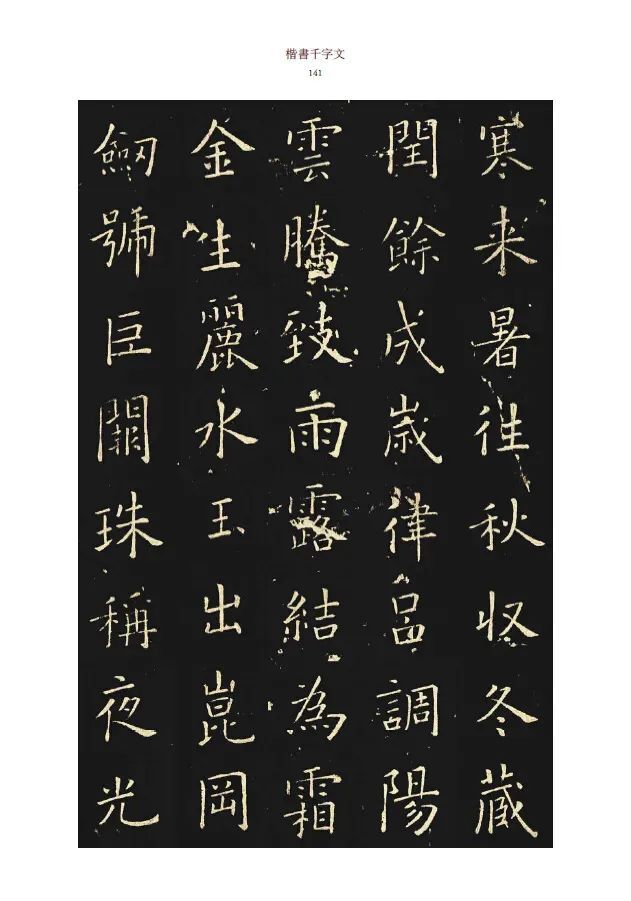 楷書千字文
141
寒来暑往秋収冬蔵
閏餘成歳律呂調陽
雲騰致雨露結為霜
金生麗水玉出崑岡
劒號巨闕珠稱夜光